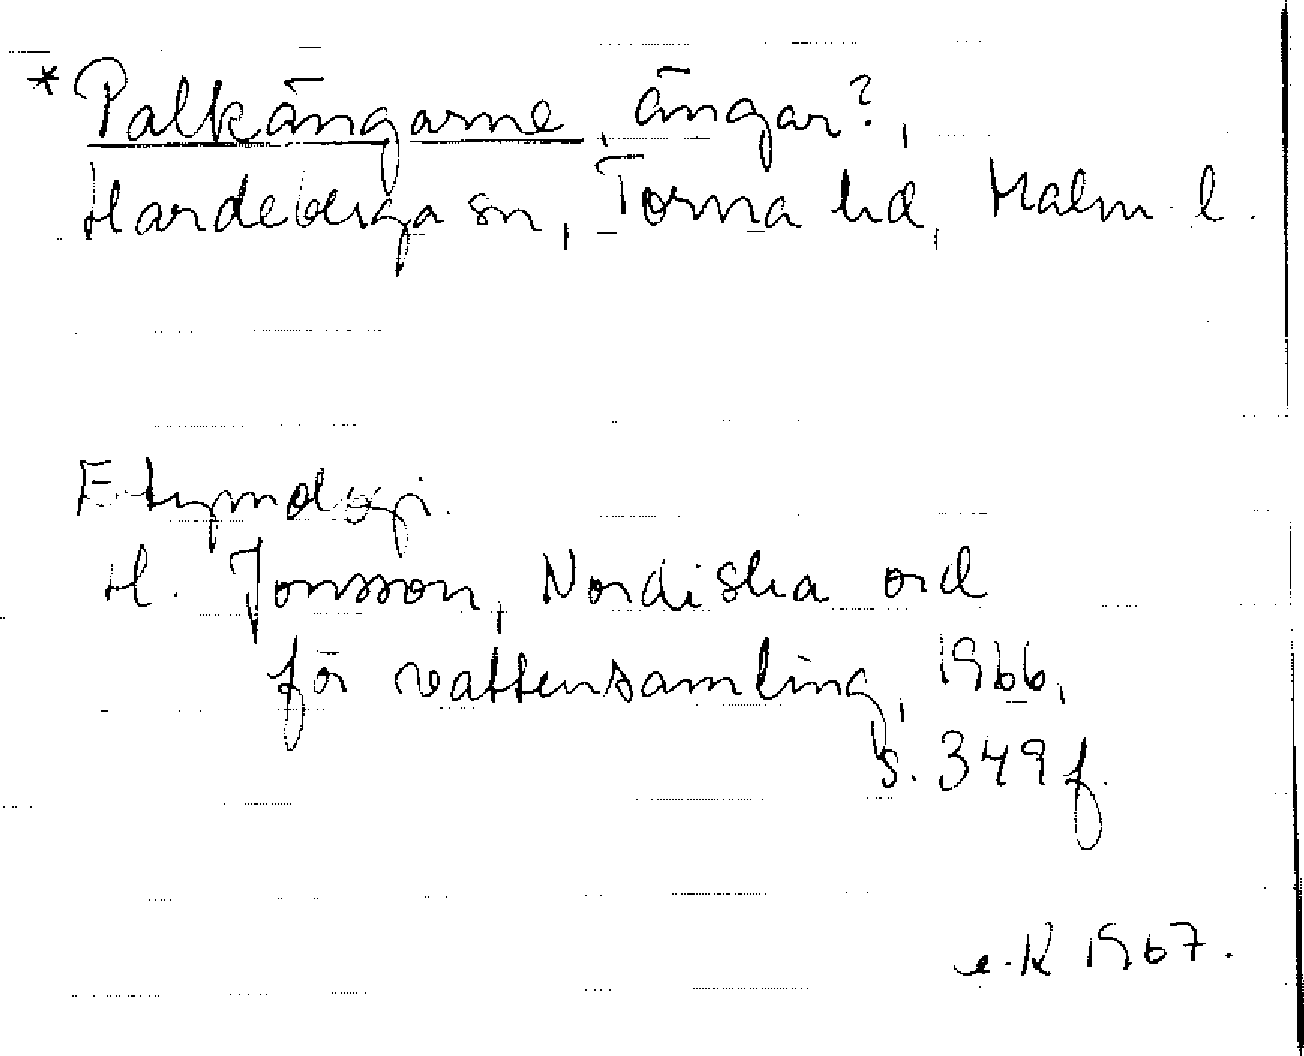 *Palkängarne, ängar?,
Hardeberga sn, Torna hd, Malm. l.
Etymologi.
H. Jonsson, Nordiska ord
för vattensamling, 1966,
s. 349 f.
1967.